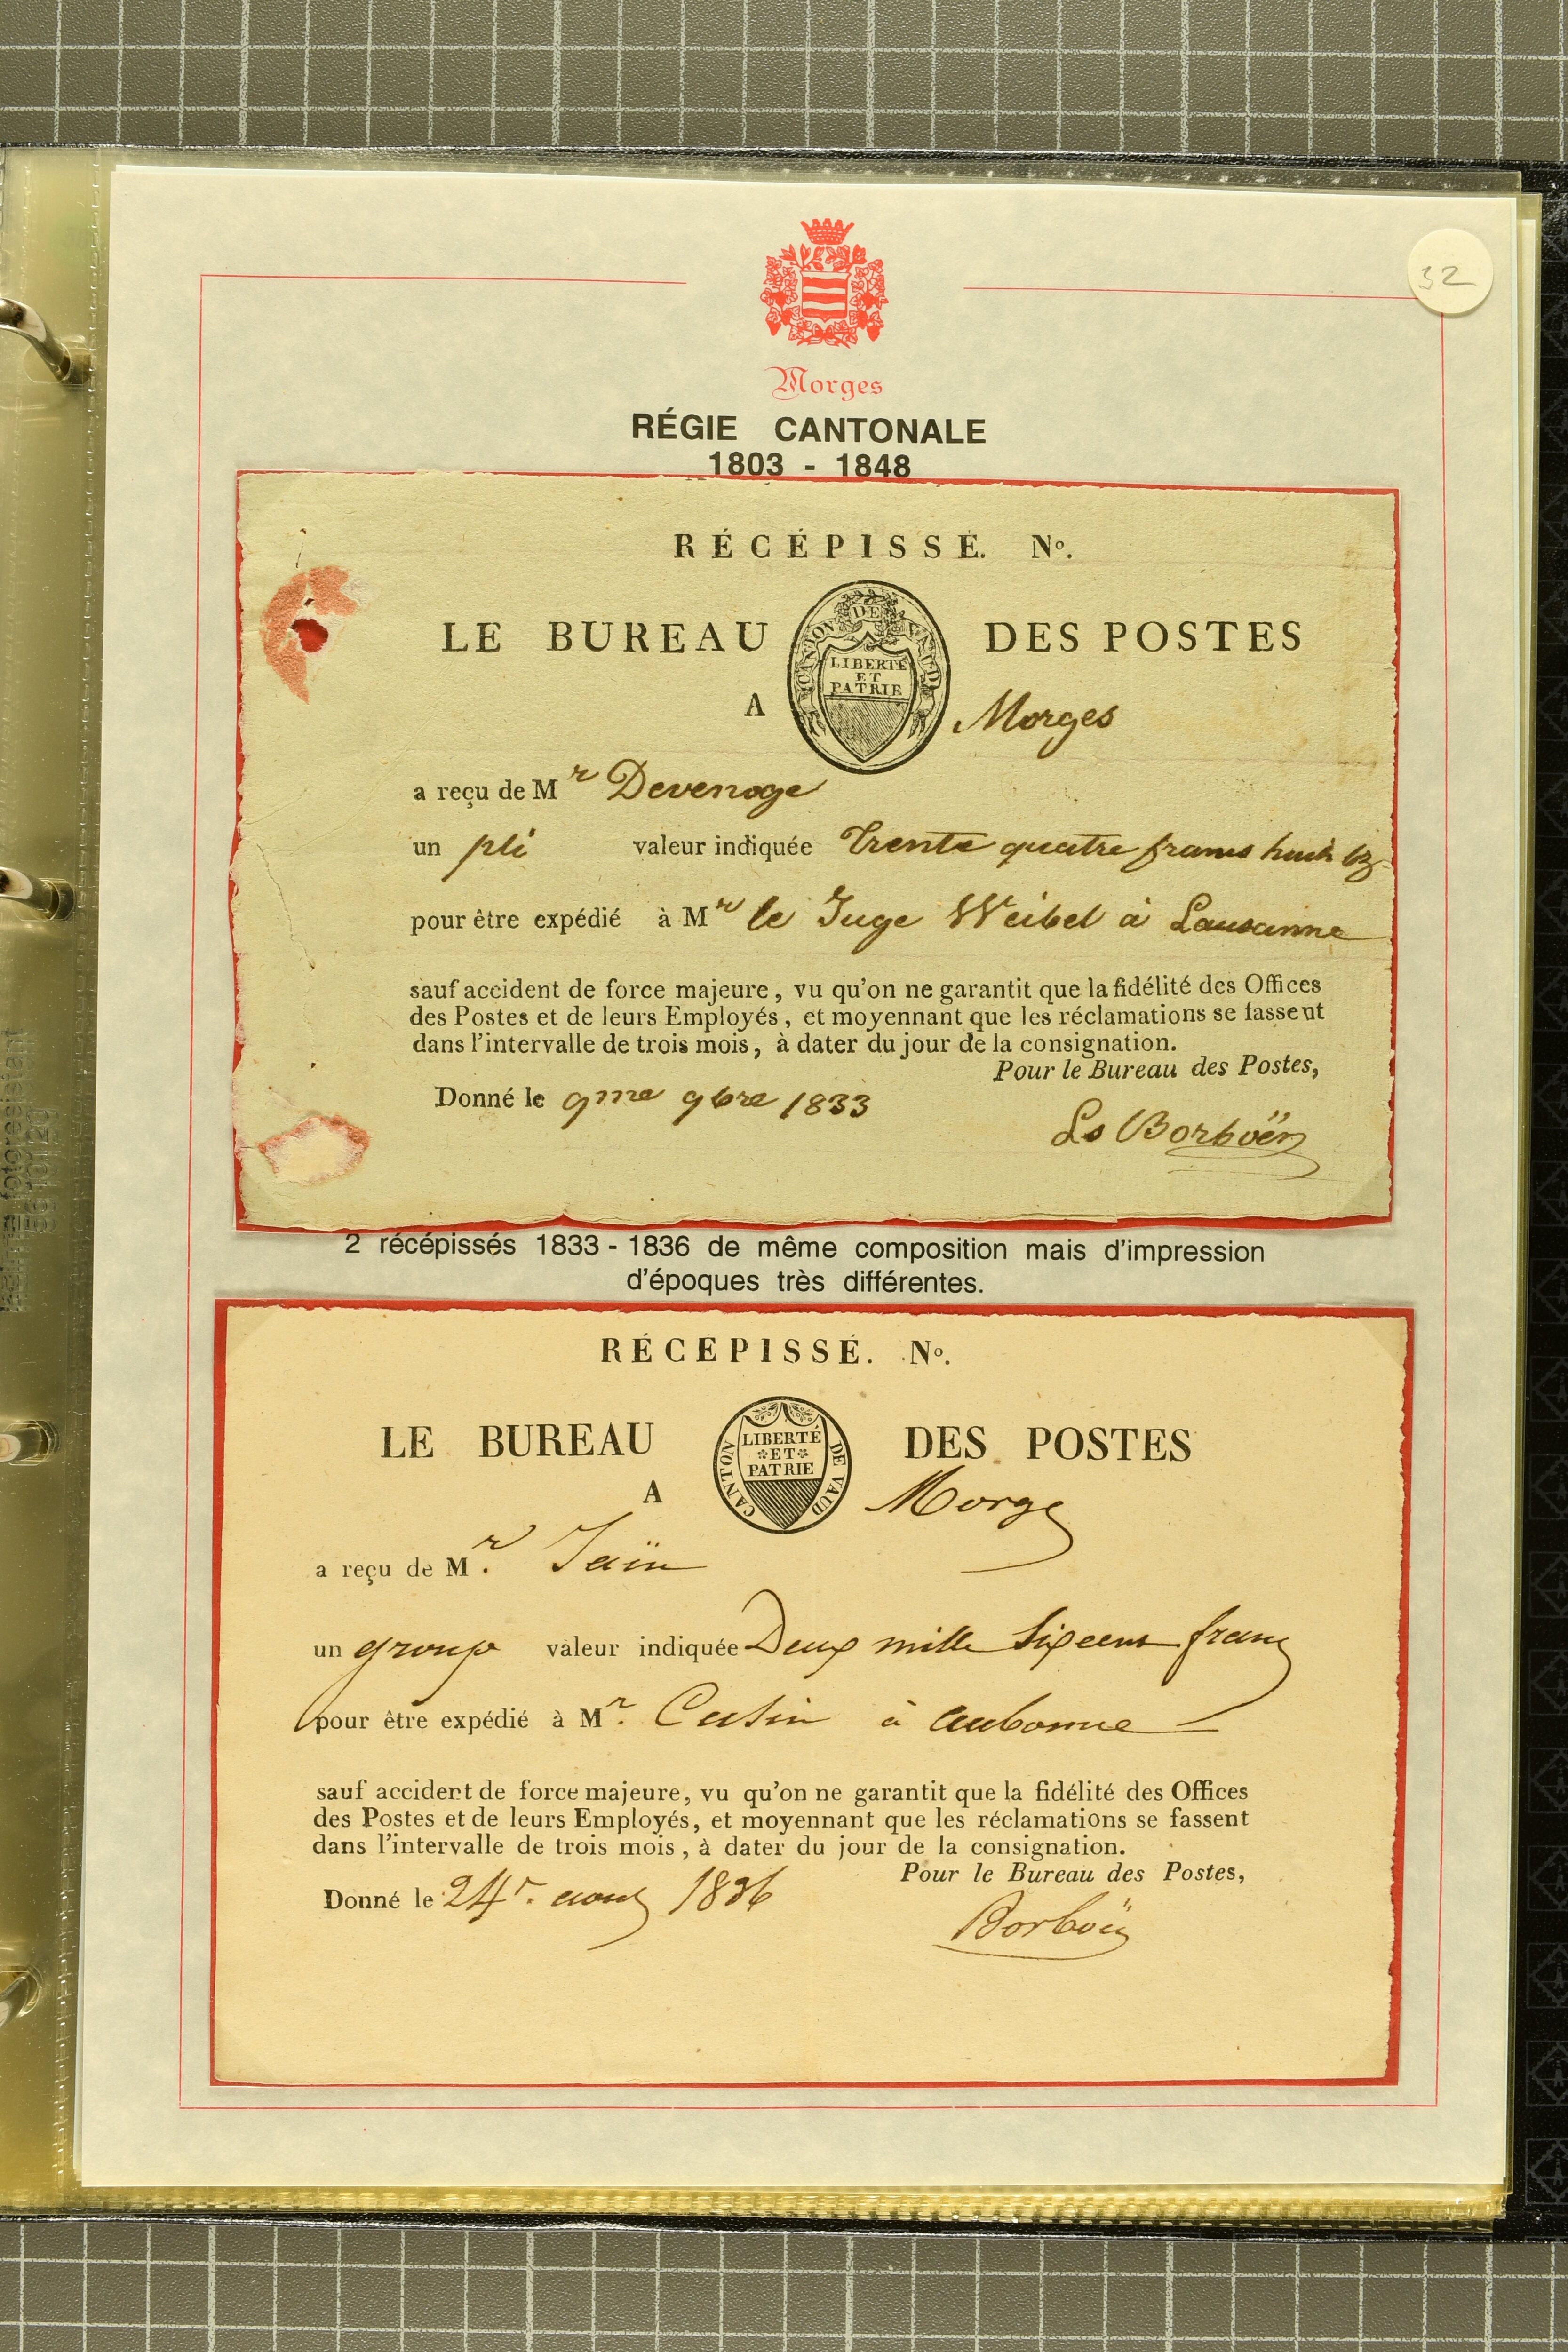 32
Morges
RÉGIE CANTONALE
1803 - 1848
RÉCÉPISSÉ. Nº.
LE BUREAU DES POSTES
CANTON DE VAUD
LIBERTÉ
ET
PATRIE
A Morges
a reçu de Mr Devenoge
un pli valeur indiquée Trente quatre francs huit bz
pour être expédié à Mr le Juge Weibel à Lausanne
sauf accident de force majeure, vu qu'on ne garantit que la fidélité des Offices
des Postes et de leurs Employés, et moyennant que les réclamations se fassent
dans l'intervalle de trois mois, à dater du jour de la consignation.
Pour le Bureau des Postes,
Donné le 9me 9bre 1833
Ls Borboën
2 récépissés 1833 - 1836 de même composition mais d'impression
d'époques très différentes.
RÉCEPISSÉ. Nº.
LE BUREAU DES POSTES
CANTON DE VAUD
LIBERTÉ
ET
PATRIE
A Morges
a reçu de Mr. Jaïn
un group valeur indiquée Deux mille Six cent francs
pour être expédié à Mr. Cusin à aubonne
sauf accident de force majeure, vu qu'on ne garantit que la fidélité des Offices
des Postes et de leurs Employés, et moyennant que les réclamations se fassent
dans l'intervalle de trois mois, à dater du jour de la consignation.
Pour le Bureau des Postes,
Donné le 24r. aout 1836
Borboën